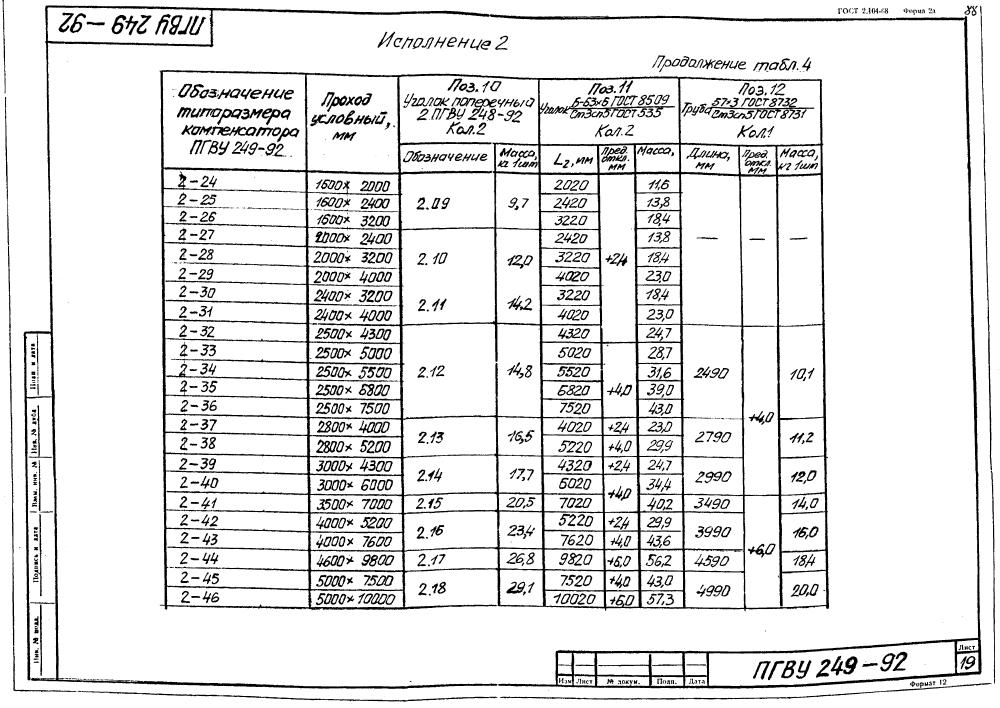 ГОСТ 2.104-68 Форма 2а
88
ПГВУ 249-92
Исполнение 2
Продолжение табл. 4
Обозначение типоразмера компенсатора ПГВУ 249-92
Проход условный, мм
Поз. 10
Уголок поперечный
2 ПГВУ 248-92
Кол. 2
Поз. 11
Уголок Б-63×6 ГОСТ 8509 / Ст3сп5 ГОСТ 535
Кол. 2
Поз. 12
Труба 57×3 ГОСТ 8732 / Ст3сп5 ГОСТ 8731
Кол. 1
Обозначение | Масса, кг 1 шт | L2, мм | Пред. откл. мм | Масса, | Длина, мм | Пред. откл. мм | Масса, кг 1 шт
2-24 1600× 2000 2020 11,6
2-25 1600× 2400 2.09 9,7 2420 13,8
2-26 1600× 3200 3220 18,4
2-27 2000× 2400 2420 13,8 — — —
2-28 2000× 3200 2.10 12,0 3220 +2,4 18,4
2-29 2000× 4000 4020 23,0
2-30 2400× 3200 2.11 14,2 3220 18,4
2-31 2400× 4000 4020 23,0
2-32 2500× 4300 4320 24,7
2-33 2500× 5000 5020 28,7
2-34 2500× 5500 2.12 14,8 5520 31,6 2490 10,1
2-35 2500× 6800 6820 +4,0 39,0
2-36 2500× 7500 7520 43,0 +4,0
2-37 2800× 4000 2.13 16,5 4020 +2,4 23,0 2790 11,2
2-38 2800× 5200 5220 +4,0 29,9
2-39 3000× 4300 2.14 17,7 4320 +2,4 24,7 2990 12,0
2-40 3000× 6000 6020 +4,0 34,4
2-41 3500× 7000 2.15 20,5 7020 40,2 3490 14,0
2-42 4000× 5200 2.16 23,4 5220 +2,4 29,9 3990 16,0
2-43 4000× 7600 7620 +4,0 43,6 +6,0
2-44 4600× 9800 2.17 26,8 9820 +6,0 56,2 4590 18,4
2-45 5000× 7500 2.18 29,1 7520 +4,0 43,0 4990 20,0
2-46 5000×10000 10020 +6,0 57,3
Подп. и дата
Инв. № дубл.
Взам. инв. №
Подпись и дата
Инв. № подл.
Изм Лист № докум. Подп. Дата
ПГВУ 249-92
Лист
19
Формат 12